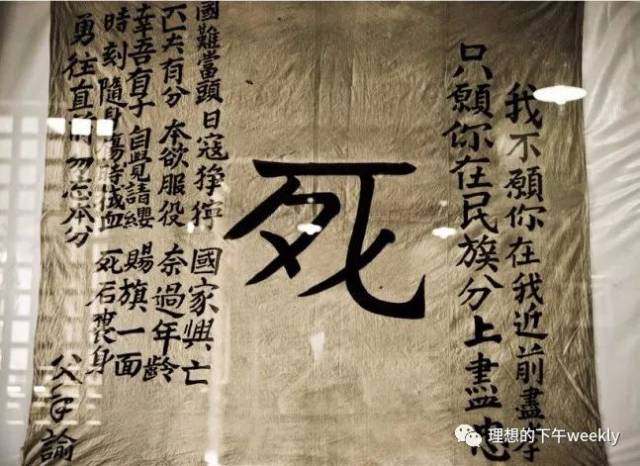 我不願你在我近前盡孝
只願你在民族分上盡忠
死
國難當頭 日寇猙獰 國家興亡
匹夫有分 本欲服役 奈過年齡
幸吾有子 自覺請纓 賜旗一面
時刻隨身 傷時拭血 死后裹身
勇往直前 勿忘本分
父手諭
理想的下午weekly